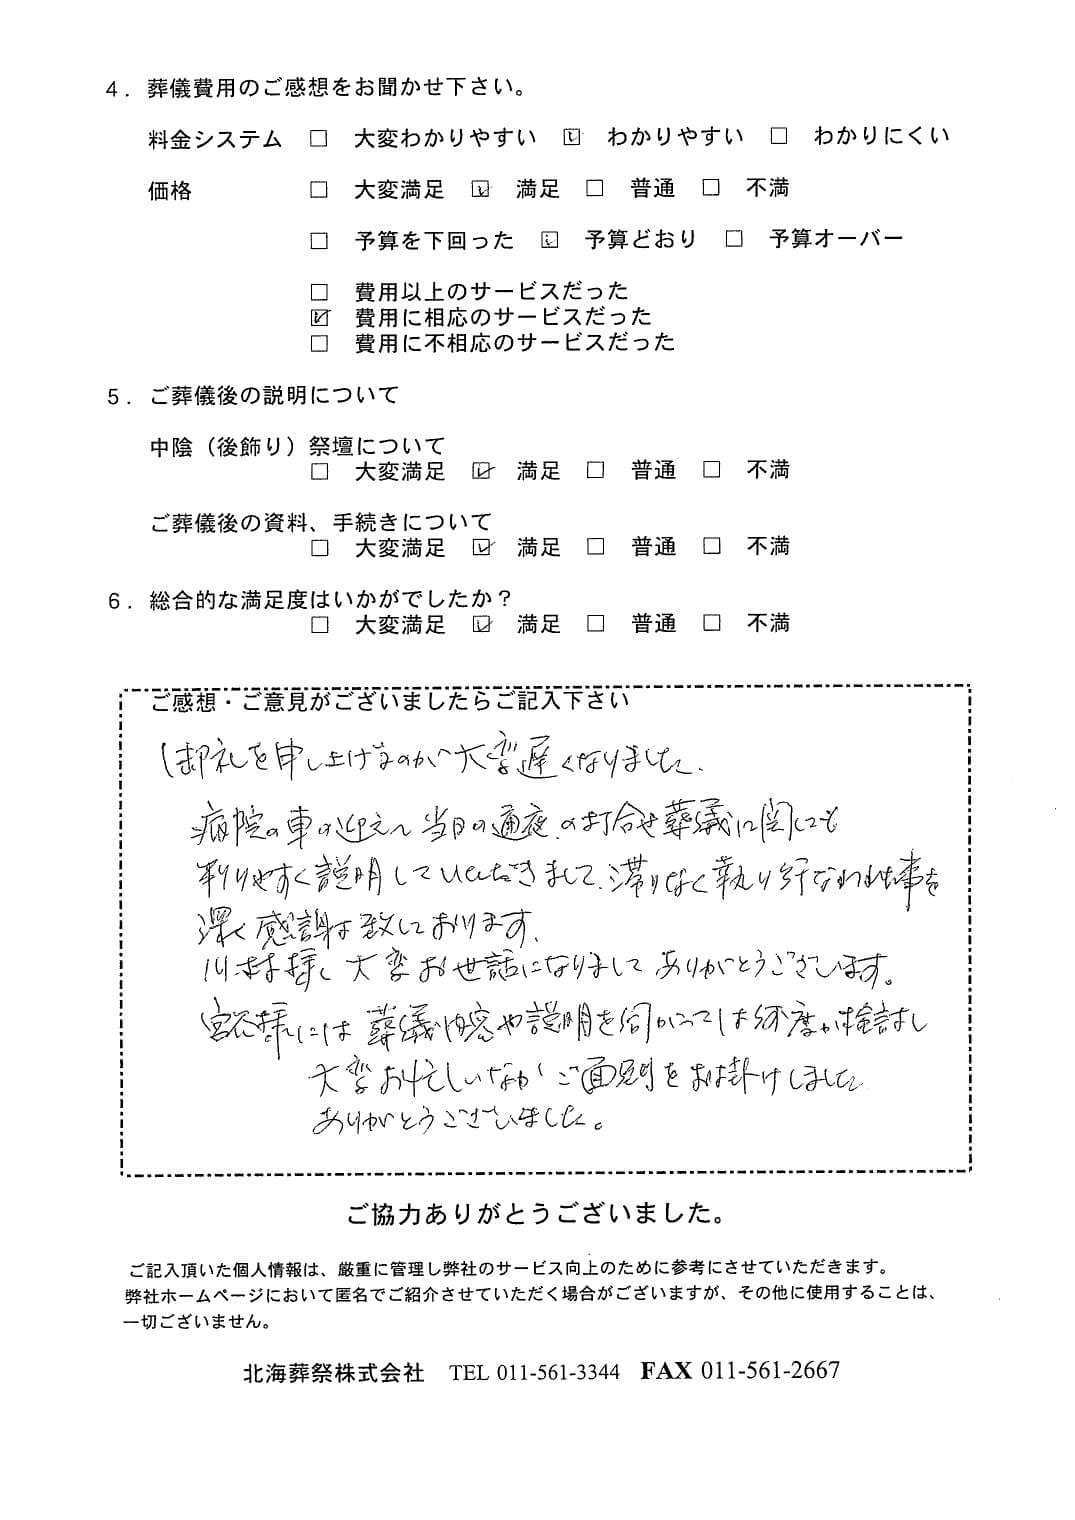 4．葬儀費用のご感想をお聞かせ下さい。
料金システム □ 大変わかりやすい ☑ わかりやすい □ わかりにくい
価格 □ 大変満足 ☑ 満足 □ 普通 □ 不満
□ 予算を下回った ☑ 予算どおり □ 予算オーバー
□ 費用以上のサービスだった
☑ 費用に相応のサービスだった
□ 費用に不相応のサービスだった
5．ご葬儀後の説明について
中陰（後飾り）祭壇について
□ 大変満足 ☑ 満足 □ 普通 □ 不満
ご葬儀後の資料、手続きについて
□ 大変満足 ☑ 満足 □ 普通 □ 不満
6．総合的な満足度はいかがでしたか？
□ 大変満足 ☑ 満足 □ 普通 □ 不満
ご感想・ご意見がございましたらご記入下さい
御礼を申し上げるのが大変遅くなりました.
病院の車の迎え〜当日の通夜.の打合せ葬儀に関しても
判りやすく説明していただきまして、滞りなく執り行なわれた事を
深く感謝致しております.
川村様、大変お世話になりまして ありがとうございます。
宮谷様には葬儀内容や説明を伺がっては何度か検討し
大変お忙しいなか ご面倒をお掛けしました
ありがとうございました。
ご協力ありがとうございました。
ご記入頂いた個人情報は、厳重に管理し弊社のサービス向上のために参考にさせていただきます。
弊社ホームページにおいて匿名でご紹介させていただく場合がございますが、その他に使用することは、
一切ございません。
北海葬祭株式会社 TEL 011-561-3344 FAX 011-561-2667